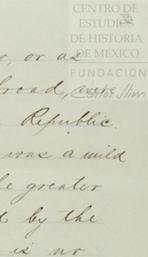 CENTRO DE
ESTUDIOS
DE HISTORIA
DE MEXICO
FUNDACIÓN
Carlos Slim
32
o, or as
broad, were
Republic.
was a mild
le greater
d by the
is no